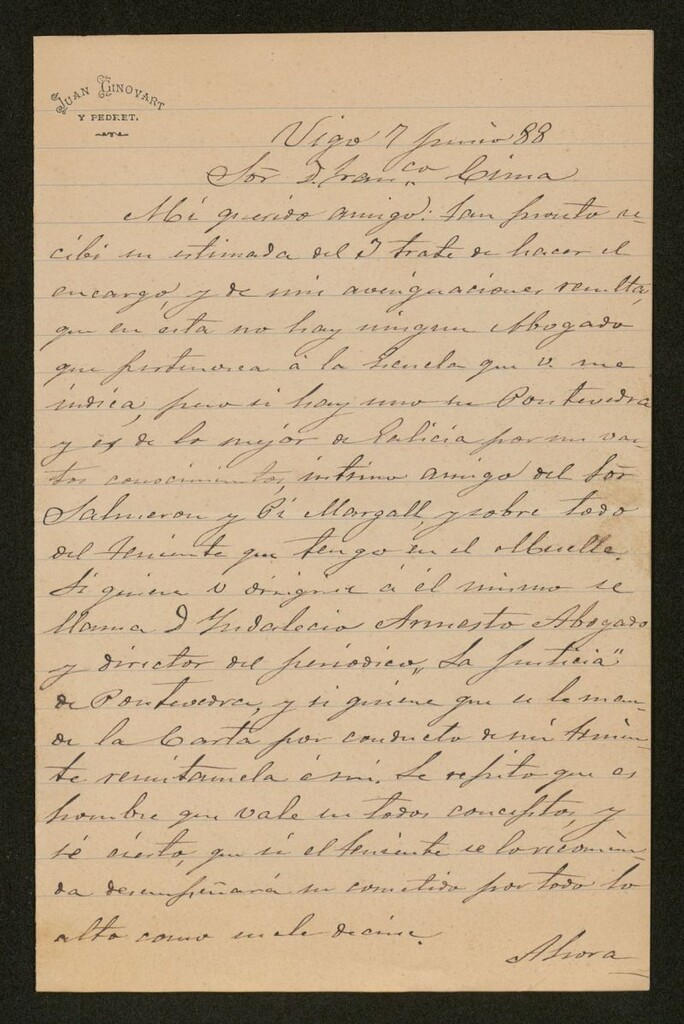 JUAN GINOVART
Y PEDRET.
Vigo 7 Junio 88
Sor. D. Franco. Cima
Mi querido amigo: tan pronto re-
cibi su estimada del 3 trate de hacer el
encargo, y de mis averiguaciones resulta,
que en esta no hay ningun Abogado
que pertenesca á la Escuela que V. me
indica, pero si hay uno en Pontevedra
y es de lo mejor de Galicia por sus vas-
tos conocimientos, intimo amigo del Sor.
Salmeron y Pi Margall, y sobre todo
del teniente que tengo en el Muelle.
Si quiere V dirigirse á él mismo se
llama D Indalecio Armesto Abogado
y director del periódico, "La Justicia"
de Pontevedra, y si quiere que se le man-
de la Carta por conducto de mi tenien-
te remitamela á mi. Le repito que es
hombre que vale en todos conceptos, y
sé cierto, que si el teniente se lo recomien-
da desempeñará su cometido por todo lo
alto como suele decirse.
Ahora